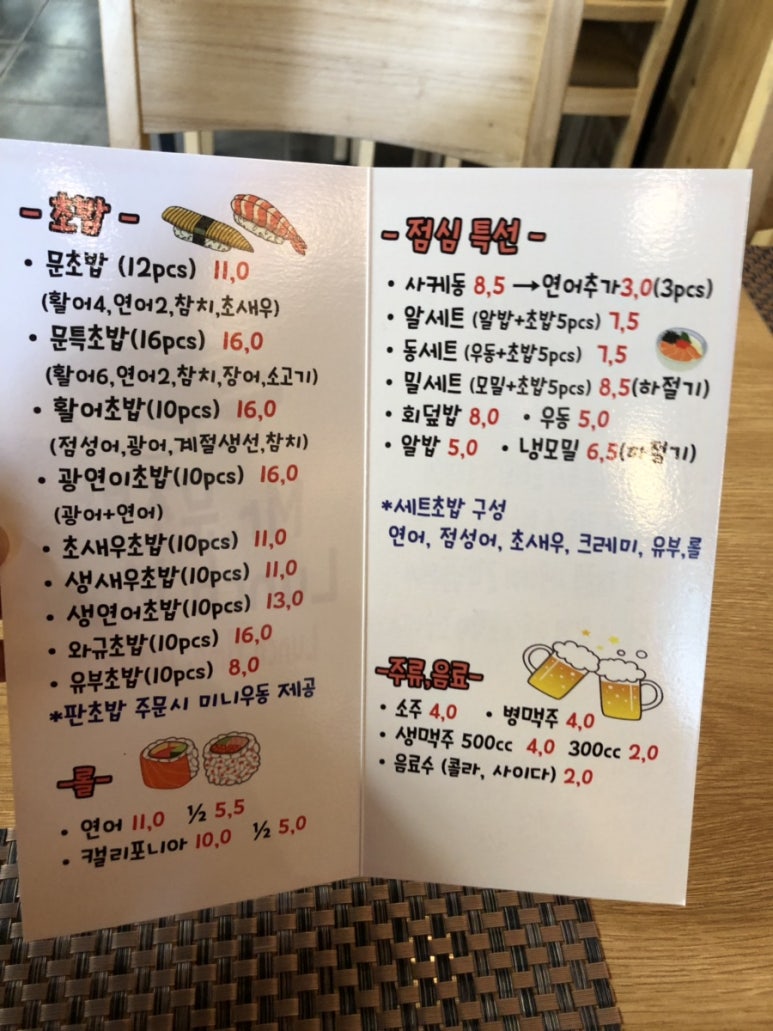 - 초밥 -
• 문초밥 (12pcs) 11,0
(활어4,연어2,참치,초새우)
• 문특초밥(16pcs) 16,0
(활어6,연어2,참치,장어,소고기)
• 활어초밥(10pcs) 16,0
(점성어,광어,계절생선,참치)
• 광연이초밥(10pcs) 16,0
(광어+연어)
• 초새우초밥(10pcs) 11,0
• 생새우초밥(10pcs) 11,0
• 생연어초밥(10pcs) 13,0
• 와규초밥(10pcs) 16,0
• 유부초밥(10pcs) 8,0
*판초밥 주문시 미니우동 제공
-롤-
• 연어 11,0 ½ 5,5
• 캘리포니아 10,0 ½ 5,0
- 점심 특선 -
• 사케동 8,5 →연어추가3,0(3pcs)
• 알세트 (알밥+초밥5pcs) 7,5
• 동세트 (우동+초밥5pcs) 7,5
• 밀세트 (모밀+초밥5pcs) 8,5(하절기)
• 회덮밥 8,0 • 우동 5,0
• 알밥 5,0 • 냉모밀 6,5(하절기)
*세트초밥 구성
연어, 점성어, 초새우, 크레미, 유부,롤
-주류,음료-
• 소주 4,0 • 병맥주 4,0
• 생맥주 500cc 4,0 300cc 2,0
• 음료수 (콜라, 사이다) 2,0